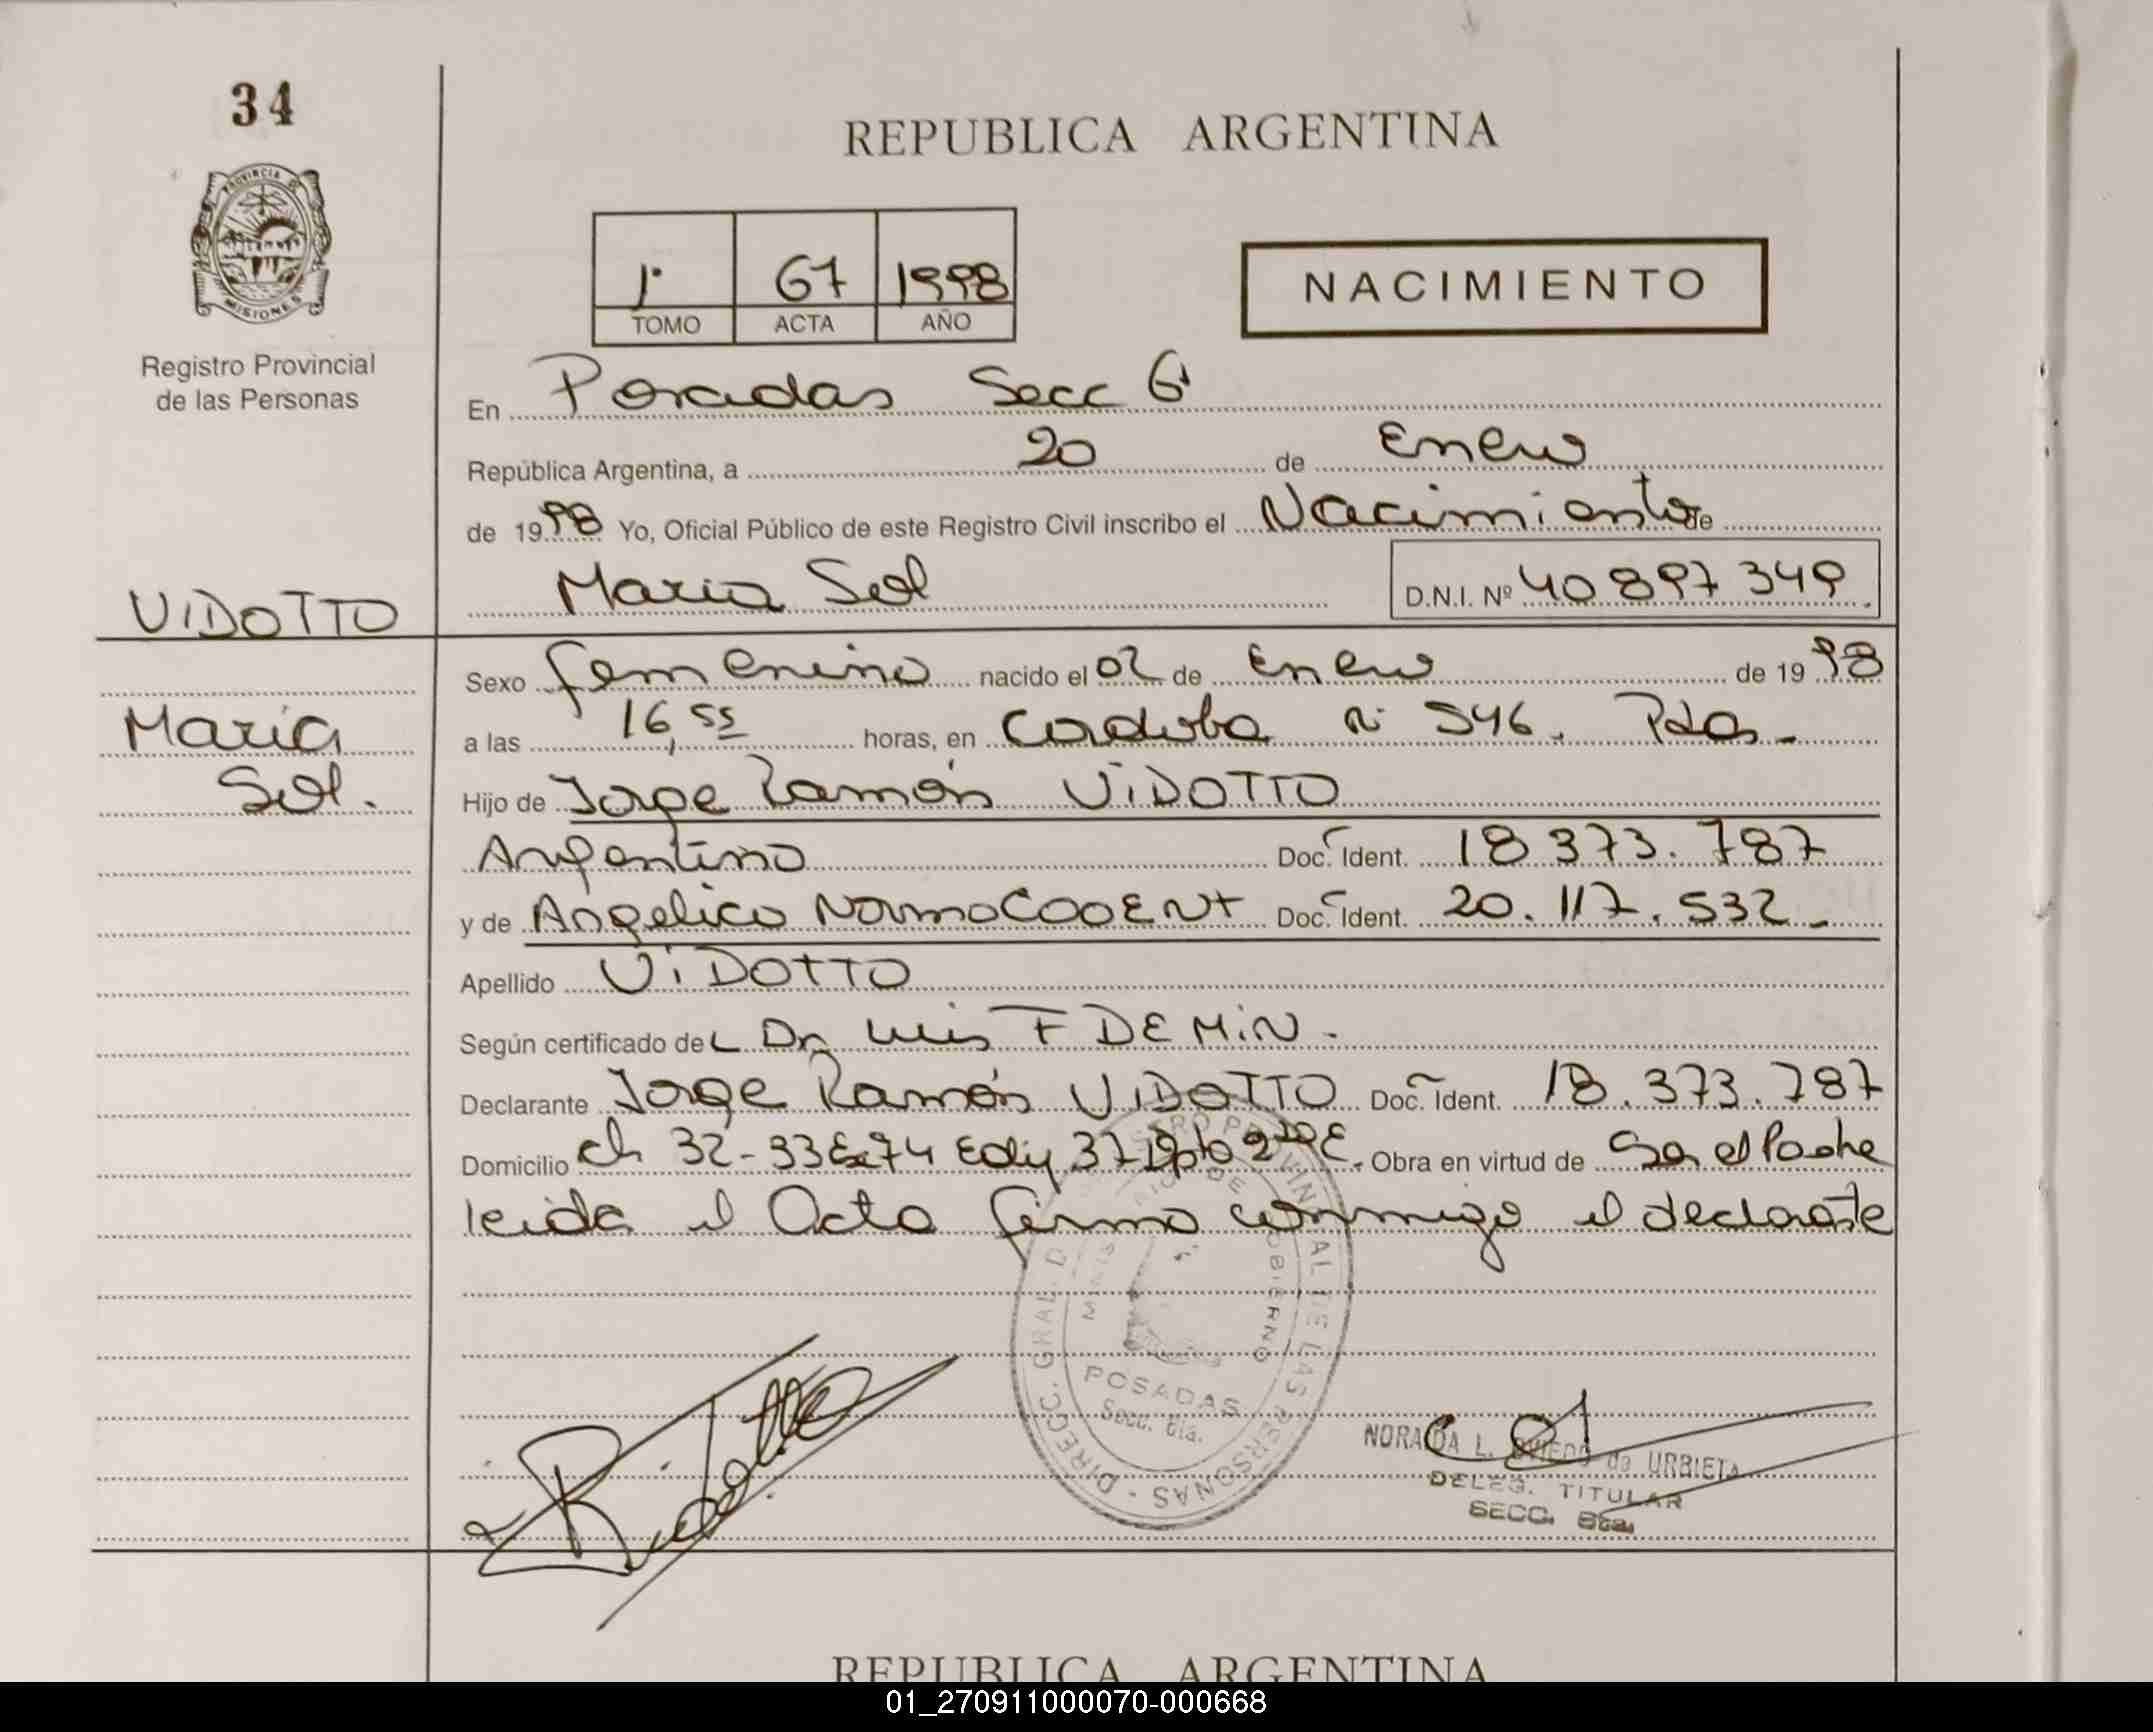 34
PROVINCIA DE
MISIONES
Registro Provincial
de las Personas
VIDOTTO
Maria
Sol.
REPUBLICA ARGENTINA
1º 67 1998
TOMO ACTA AÑO
NACIMIENTO
En Posadas Secc 6ª
República Argentina, a 20 de Enero
de 1998 Yo, Oficial Público de este Registro Civil inscribo el Nacimiento de
Maria Sol D.N.I. Nº 40 897 349
Sexo femenino nacido el 02 de Enero de 1998
a las 16,55 horas, en Cordoba Nº 546. Pdas.
Hijo de Jorge Ramón VIDOTTO
Argentino Doc. Ident. 18 373.787
y de Angelica Norma Doc. Ident. 20.117.532
Apellido VIDOTTO
Según certificado del Dr Luis F DEMIN.
Declarante Jorge Ramón VIDOTTO Doc. Ident. 18.373.787
Domicilio ch 32-33 Edif 37 Dpto Obra en virtud de Ser el Padre
leida el Acta firma conmigo el declarante
DIRECC. GRAL. DE REGISTRO PROVINCIAL DE LAS PERSONAS
MINIS DE GOBIERNO
POSADAS
Secc. 6ta.
NORA L. OVIEDO de URBIETA
DELEG. TITULAR
SECC. 6ta.
REPUBLICA ARGENTINA
01_270911000070-000668